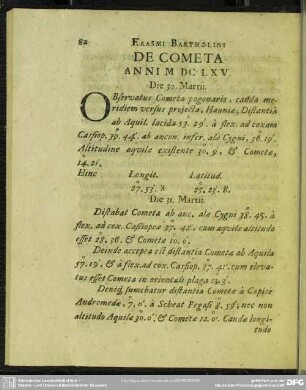 82 ERASMI BARTHOLINI
DE COMETA
ANNI M DC LXV.
Die 30. Martii.
OBservatus Cometa pogonaris, cauda me-
ridiem versus projecta, Hauniæ, Distantiâ
ab Aquil. lucida 53. 29'. à flex. ad coxam
Cassiop. 39. 44'. ab ancon. infer. alæ Cygni, 36. 19'.
Altitudine aquilæ existente 30. 9', & Cometæ,
14. 21,
Hinc Longit. Latitud.
27. 53'. 25. 23'. B.
Die 31. Martii.
Distabat Cometa ab anc. alæ Cygni 38. 45'. à
flex. ad cox. Cassiopeæ 37. 48'. cum aquilæ altitudo
esset 28. 36'. & Cometæ 10. 6'.
Deinde accepta est distantia Cometæ ab Aquila
57. 19'. & à flex. ad cox. Cassiop. 37. 41'. cum eleva-
tus esset Cometa in orientali plaga 13. 3'.
Deniq; sumebatur distantia Cometæ à Capite
Andromedæ, 7. 0'. à Scheat Pegasi 8. 58'; nec non
altitudo Aquilæ 30. 0'. & Cometæ 12. 0'. Caudæ longi-
tudo